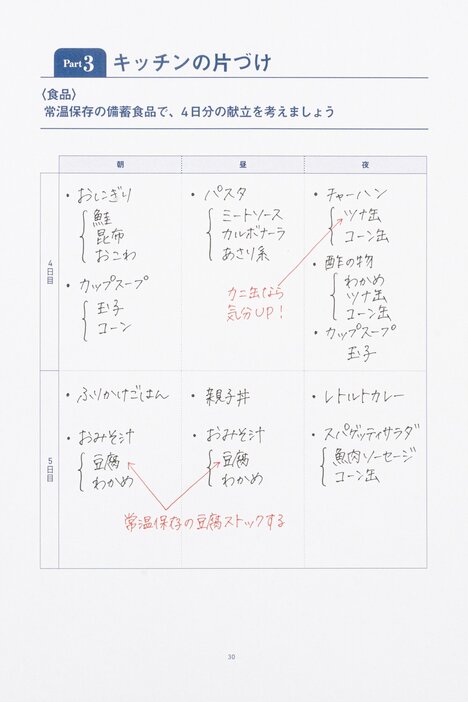 Part 3 キッチンの片づけ
〈食品〉
常温保存の備蓄食品で、4日分の献立を考えましょう
朝 昼 夜
4日目
・おにぎり
鮭
昆布
おこわ
・カップスープ
玉子
コーン
・パスタ
ミートソース
カルボナーラ
あさり系
カニ缶なら
気分UP!
・チャーハン
ツナ缶
コーン缶
・酢の物
わかめ
ツナ缶
コーン缶
・カップスープ
玉子
5日目
・ふりかけごはん
・おみそ汁
豆腐
わかめ
・親子丼
・おみそ汁
豆腐
わかめ
常温保存の豆腐ストックする
・レトルトカレー
・スパゲッティサラダ
魚肉ソーセージ
コーン缶
30